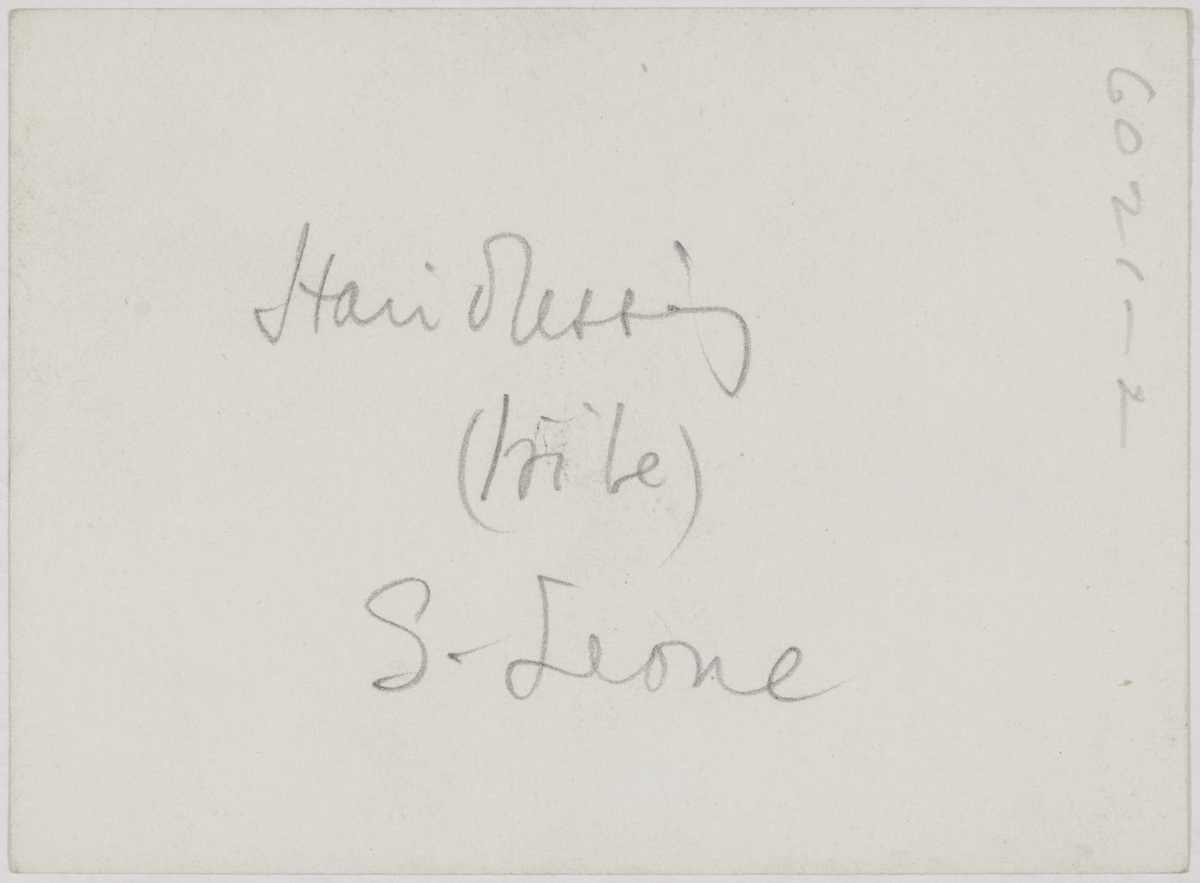 Hairdressing
(tribe)
S. Leone
6021-2